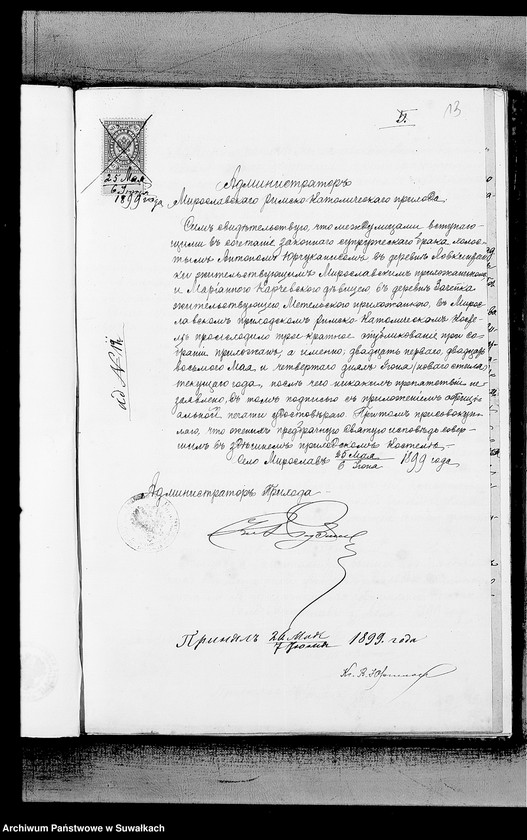 13
25 Мая
6 Iюня
1899 года
Администраторъ
Мирославскаго римско-католическаго прихода.
Симъ свидѣтельствую, что между лицами вступаю-
щими въ согласіе законнаго супружескаго брака холос-
тымъ Антономъ въ деревнѣ
жительствующимъ Мирославскимъ прихожаниномъ
и Маріанною дѣвицею въ деревнѣ
жительствующею Метельскою прихожанкою, въ Мирос-
лавскомъ приходскомъ римско-католическомъ косте-
лѣ произходило трое-кратное опубликованіе при со-
браніи прихожанъ, а именно: двадцать перваго, двадцать
восьмого Мая, и четвертаго дняхъ Iюня (новаго стиля)
текущаго года, послѣ чего никакихъ препятствій не
заявлено, въ томъ подписью съ приложеніемъ оффици-
альной печати удостовѣряю. Притомъ присовокуп-
ляю, что женихъ предбрачную Святую исповѣдь совер-
шилъ въ здѣшнемъ приходскомъ костелѣ.
Село Мирославъ 25 Мая 1899 года
6 Iюня
ad №
Администраторъ Прихода
Принялъ 26 Мая 1899 года
7 Iюня
Archiwum Państwowe w Suwałkach